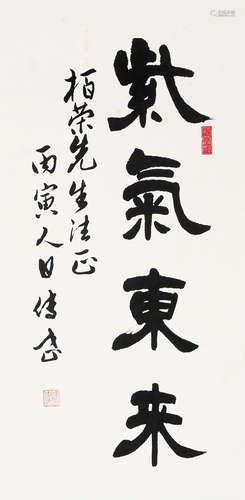 紫氣東来
栢荣先生法正
丙寅人日傅